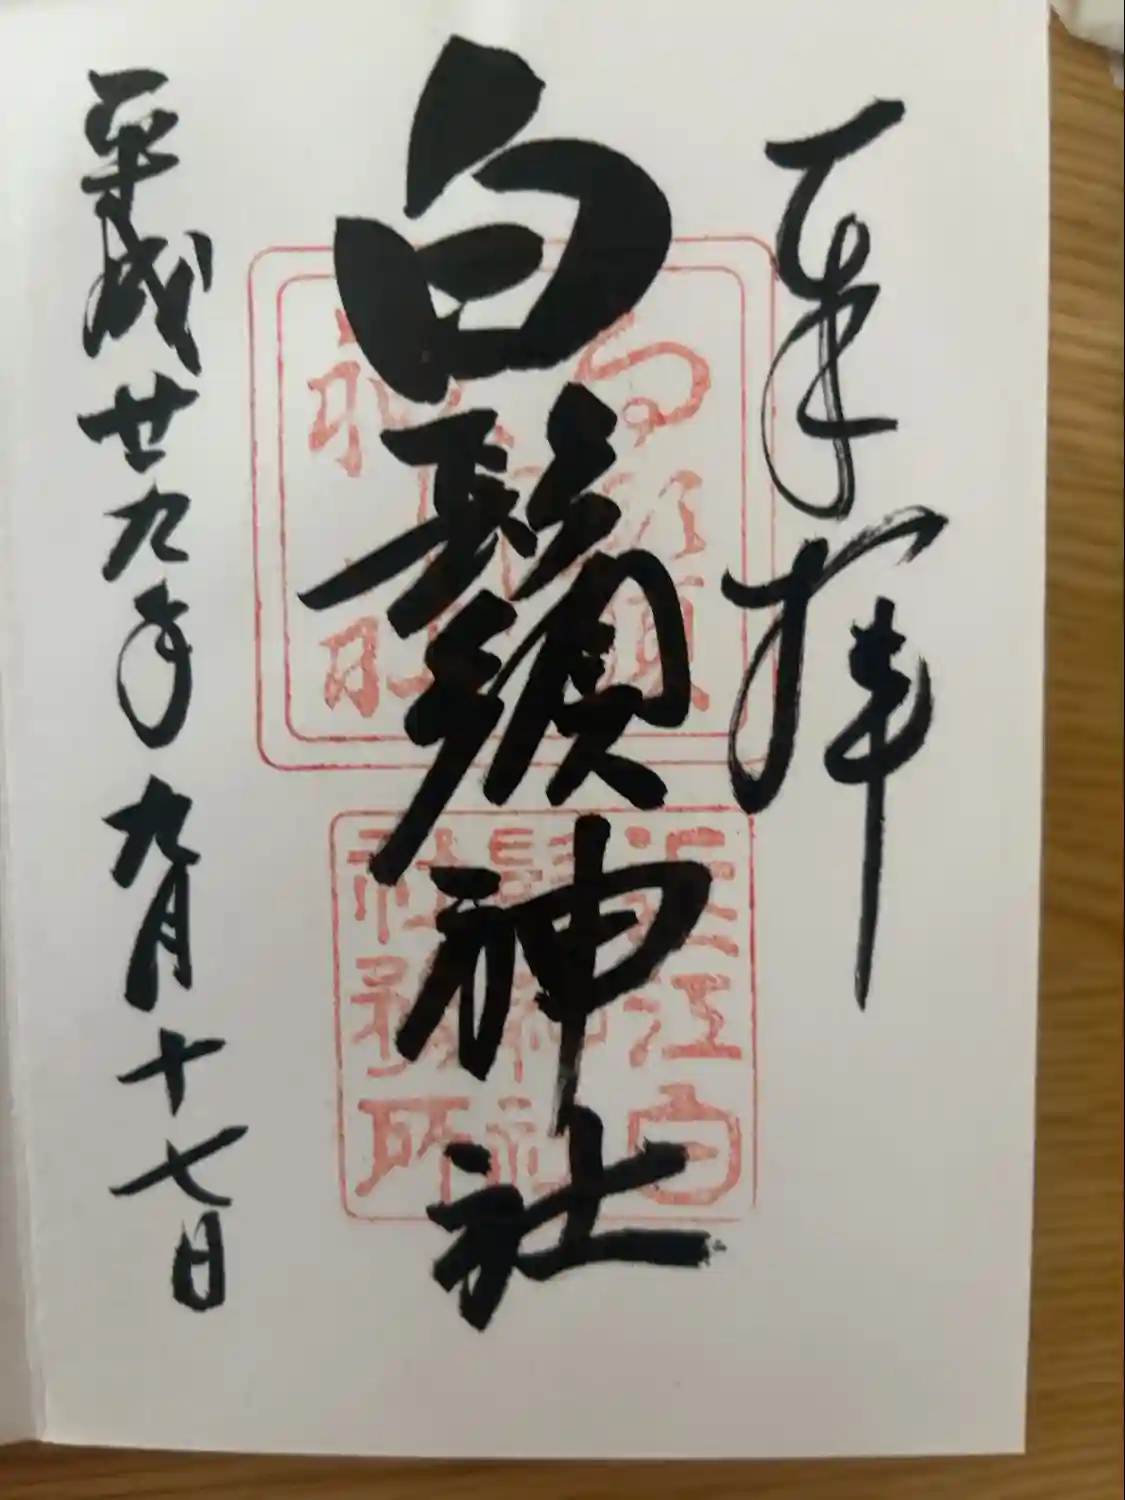 奉拝
白鬚神社
平成廿九年九月十七日
白鬚神社
近江白
鬚神社
社務所